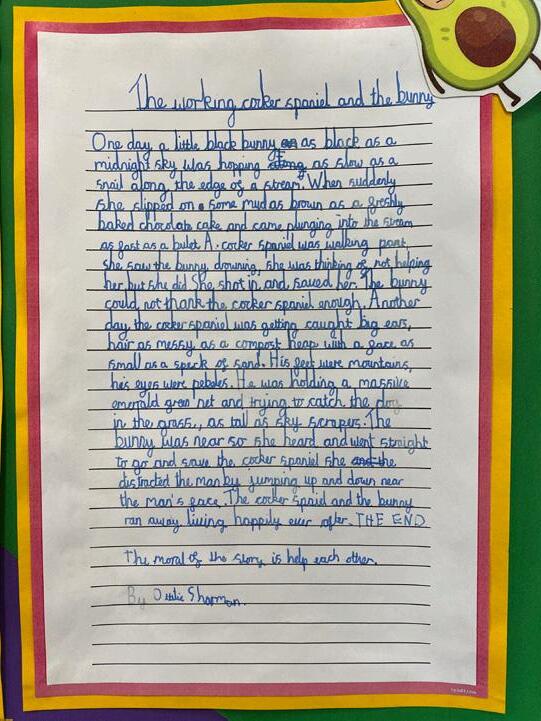 The working cocker spaniel and the bunny
One day a little black bunny as black as a
midnight sky was hopping as slow as a
snail along the edge of a stream. When suddenly
she slipped on some mud as brown as a freshly
baked chocolate cake and came plunging into the stream
as fast as a bulet. A cocker spaniel was walking past,
she saw the bunny drowning, she was thinking of not helping
her but she did She shot in and saved her. The bunny
could not thank the cocker spaniel enough. Another
day the cocker spaniel was getting caught big ears,
hair as messy as a compost heap with a face as
small as a speck of sand. His feet were mountains,
his eyes were pebbles. He was holding a massive
emorald green net and trying to catch the dog
in the grass, as tall as sky scrapers. The
bunny was near so she heard and went straight
to go and save the cocker spaniel she
distracted the man by jumping up and down near
the man's face. The cocker spaniel and the bunny
ran away living happily ever after. THE END
The moral of the story is help each other.
By Sharman.